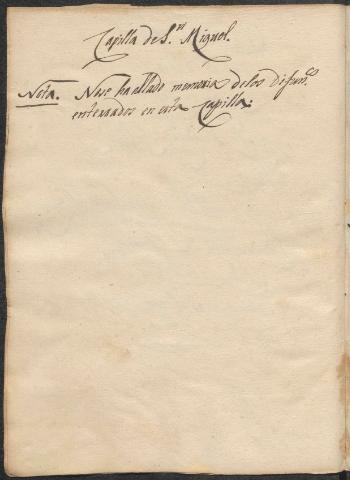 Capilla de S.n Miguel.
Nota. Nose ha allado memoria delos Difun.cos
enterrados en esta Capilla.